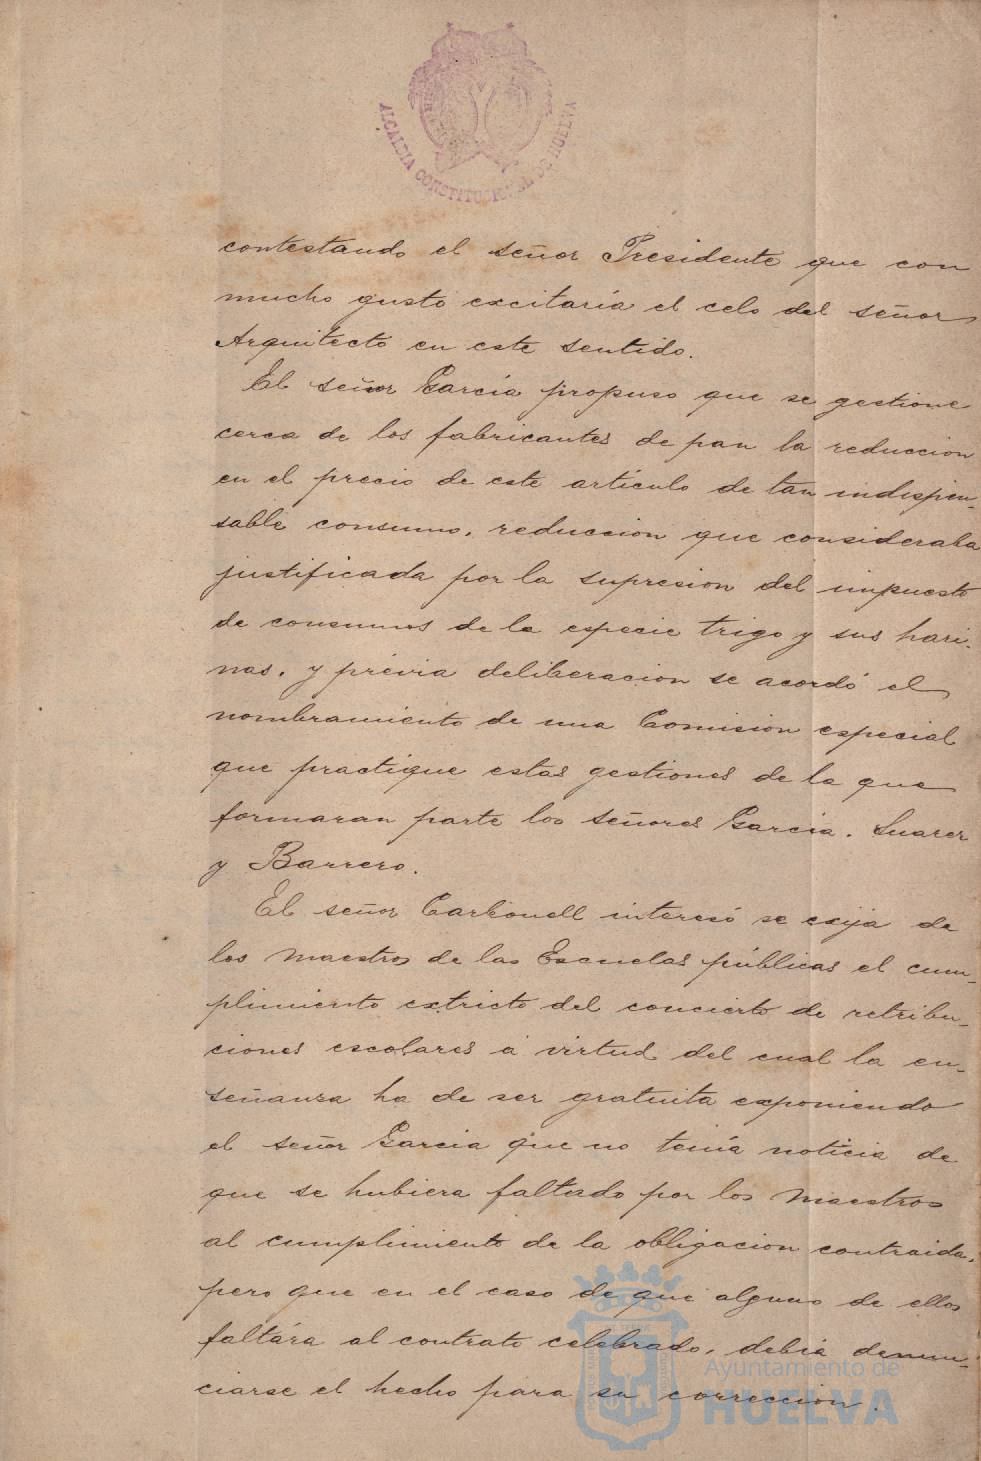 ALCALDIA CONSTITUCIONAL DE HUELVA
contestando el señor Presidente que con
mucho gusto excitaría el celo del señor
Arquitecto en este sentido.
El señor Garcia propuso que se gestione
cerca de los fabricantes de pan la reduccion
en el precio de este artículo de tan indispen-
sable consumo, reduccion que consideraba
justificada por la supresion del impuesto
de consumos de la especie trigo y sus hari-
nas, y prévia deliberacion se acordó el
nombramiento de una Comision especial
que practique estas gestiones de la que
formaran parte los señores Garcia, Suarez
y Barrero.
El señor Carbonell interesó se exija de
los maestros de las Escuelas públicas el cum-
plimiento extricto del concierto de retribu-
ciones escolares á virtud del cual la en-
señanza ha de ser gratuita exponiendo
el señor Garcia que no tenía noticia de
que se hubiera faltado por los maestros
al cumplimiento de la obligacion contraida,
pero que en el caso de que alguno de ellos
faltára al contrato celebrado, debía denun-
ciarse el hecho para su correccion.
Ayuntamiento de
HUELVA